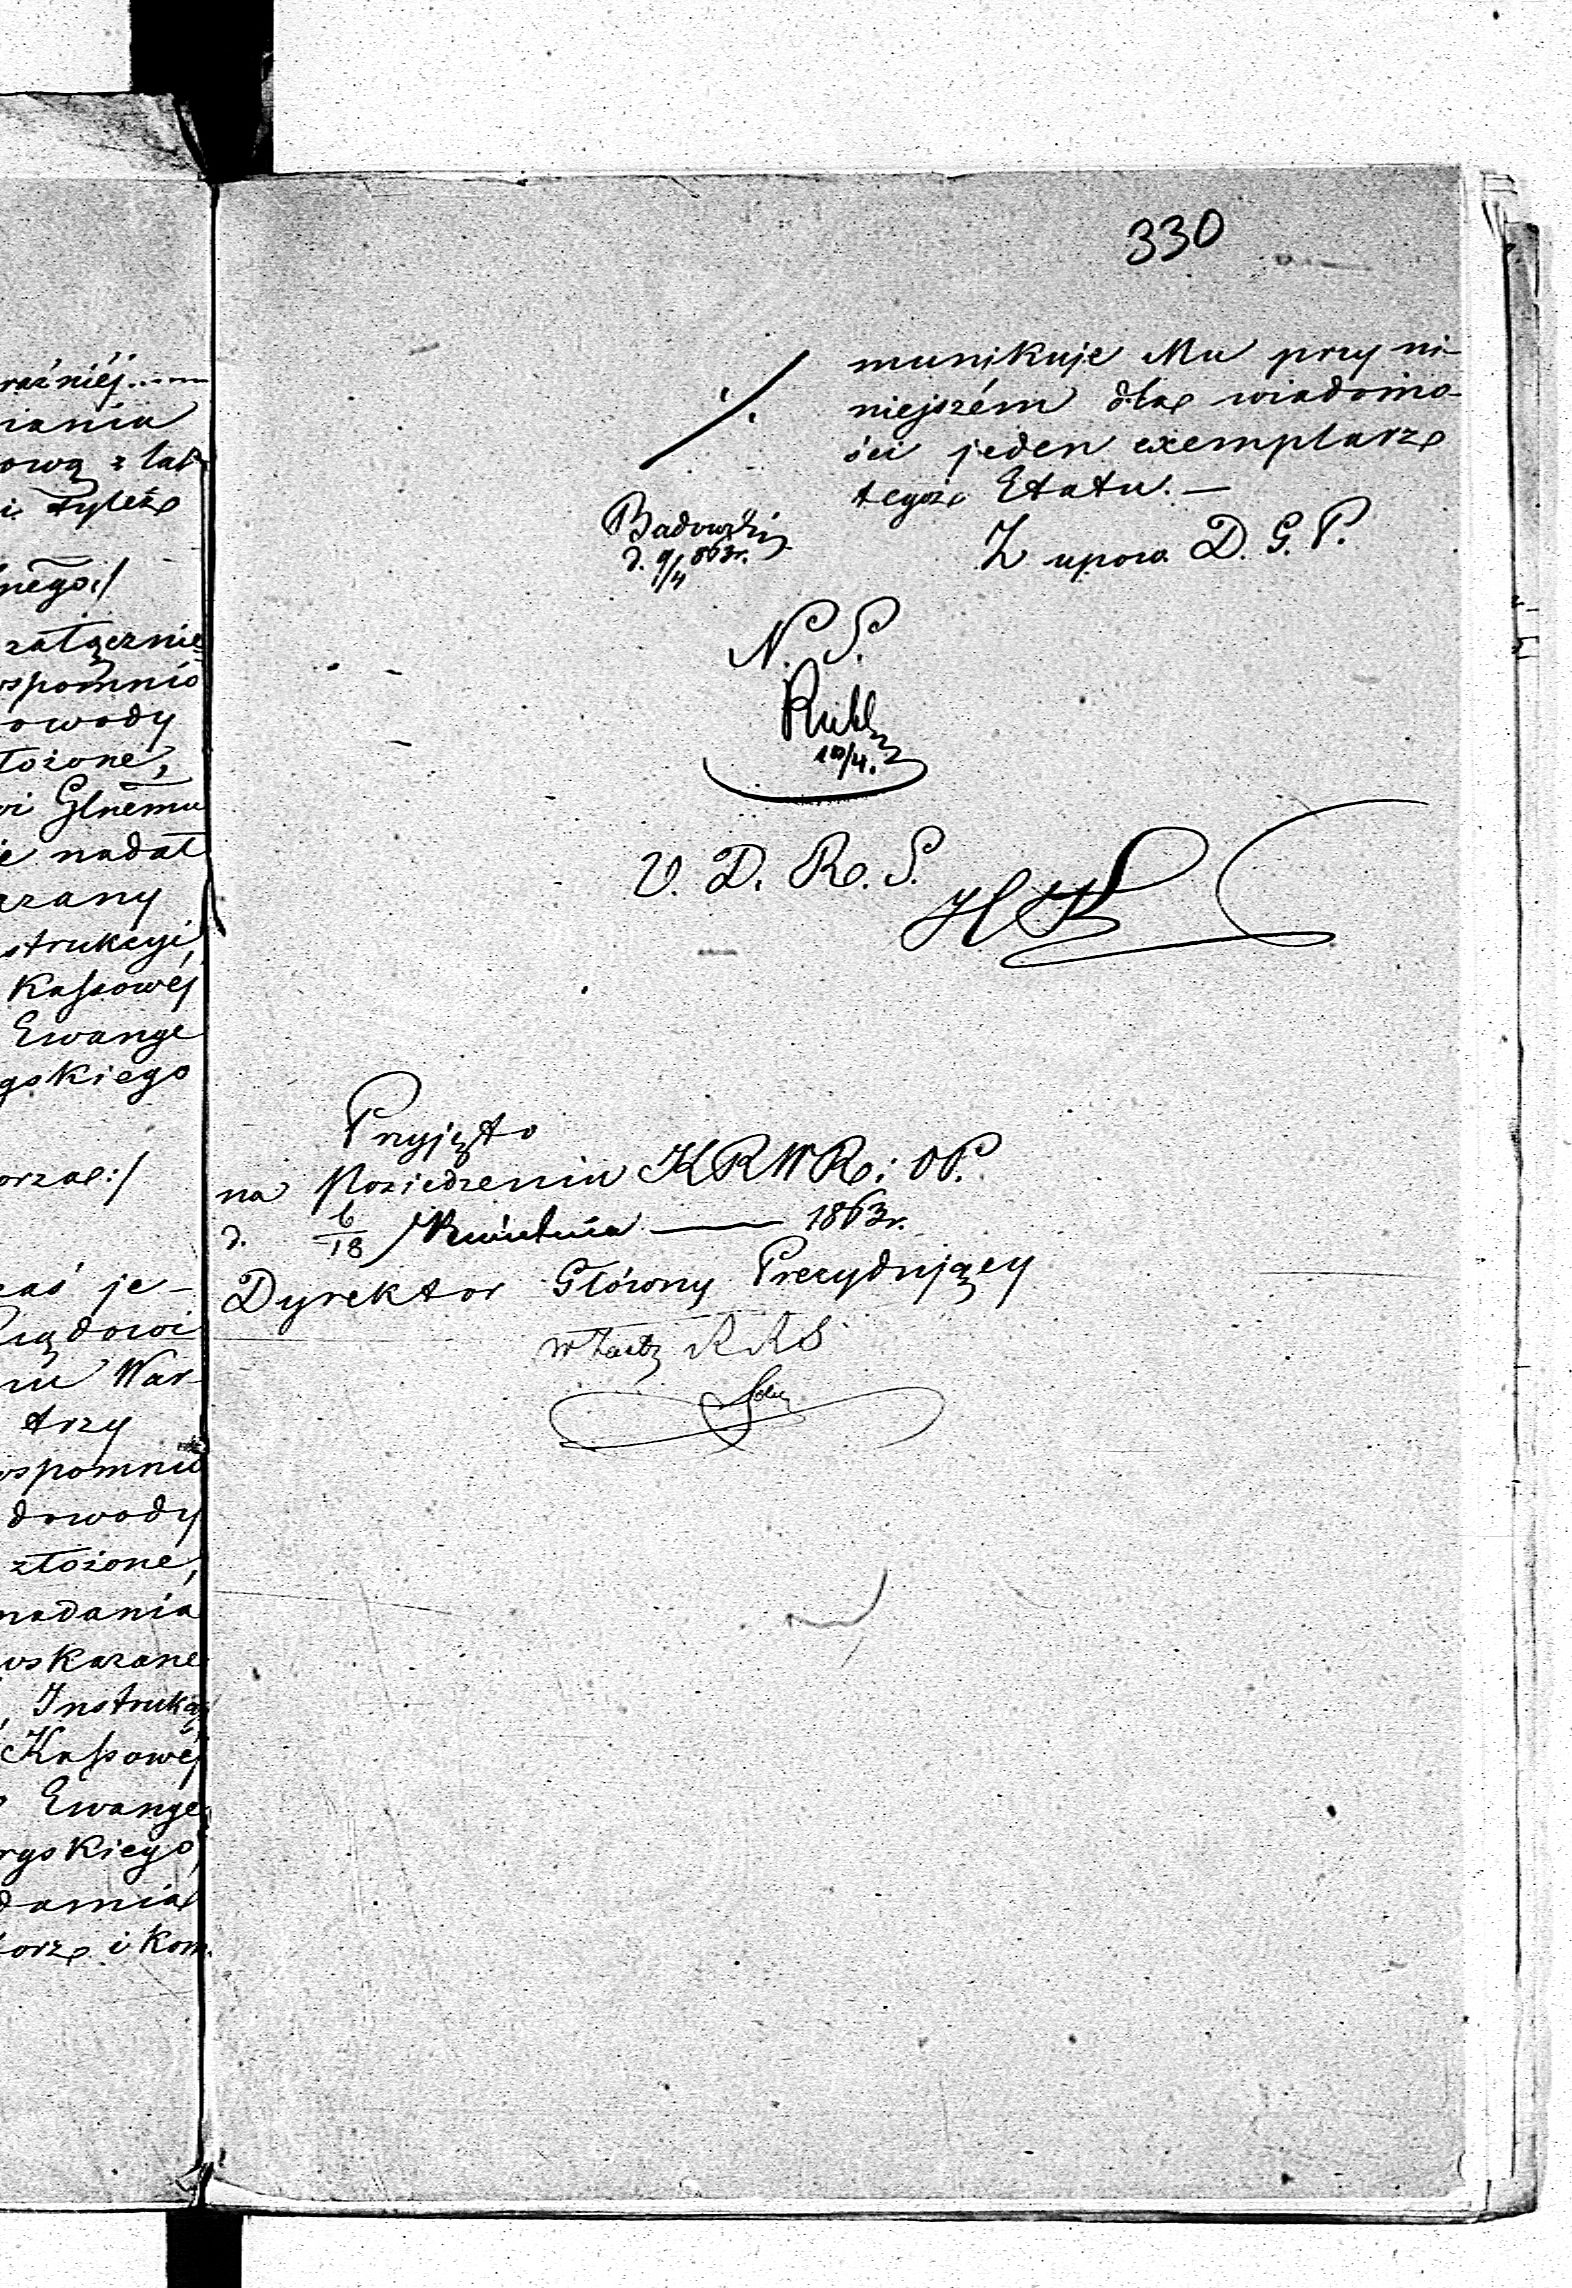 raźniéj......
niania
ową z lat
i tyleż
nego:/
załącznie
wspomnio
owody
łożone,
wi Glnemu
ie nadał
azany
strukcyi
Kassowéj
Ewange
gskiego
orzae:/
zaś je-
Rządowi
niu War-
trzy
wspomnio
dowody
złożone,
nadania
wskazane
Instrukcy
Kassowéj
Ewange
rgskiego
damia
torze i kom
330
munikuje Mu przy ni-
niejszém dla wiadomo-
ści jeden exemplarz
tegoż Etatu. —
Z upow. D. G. P.
Badowski
d. 9/4 863r.
N. S.
10/4.
V. D. R. S.
Przyjęto
na Posiedzeniu KRWR i OP.
d. 6/18 Kwietnia — 1863r.
Dyrektor Główny Prezydujący